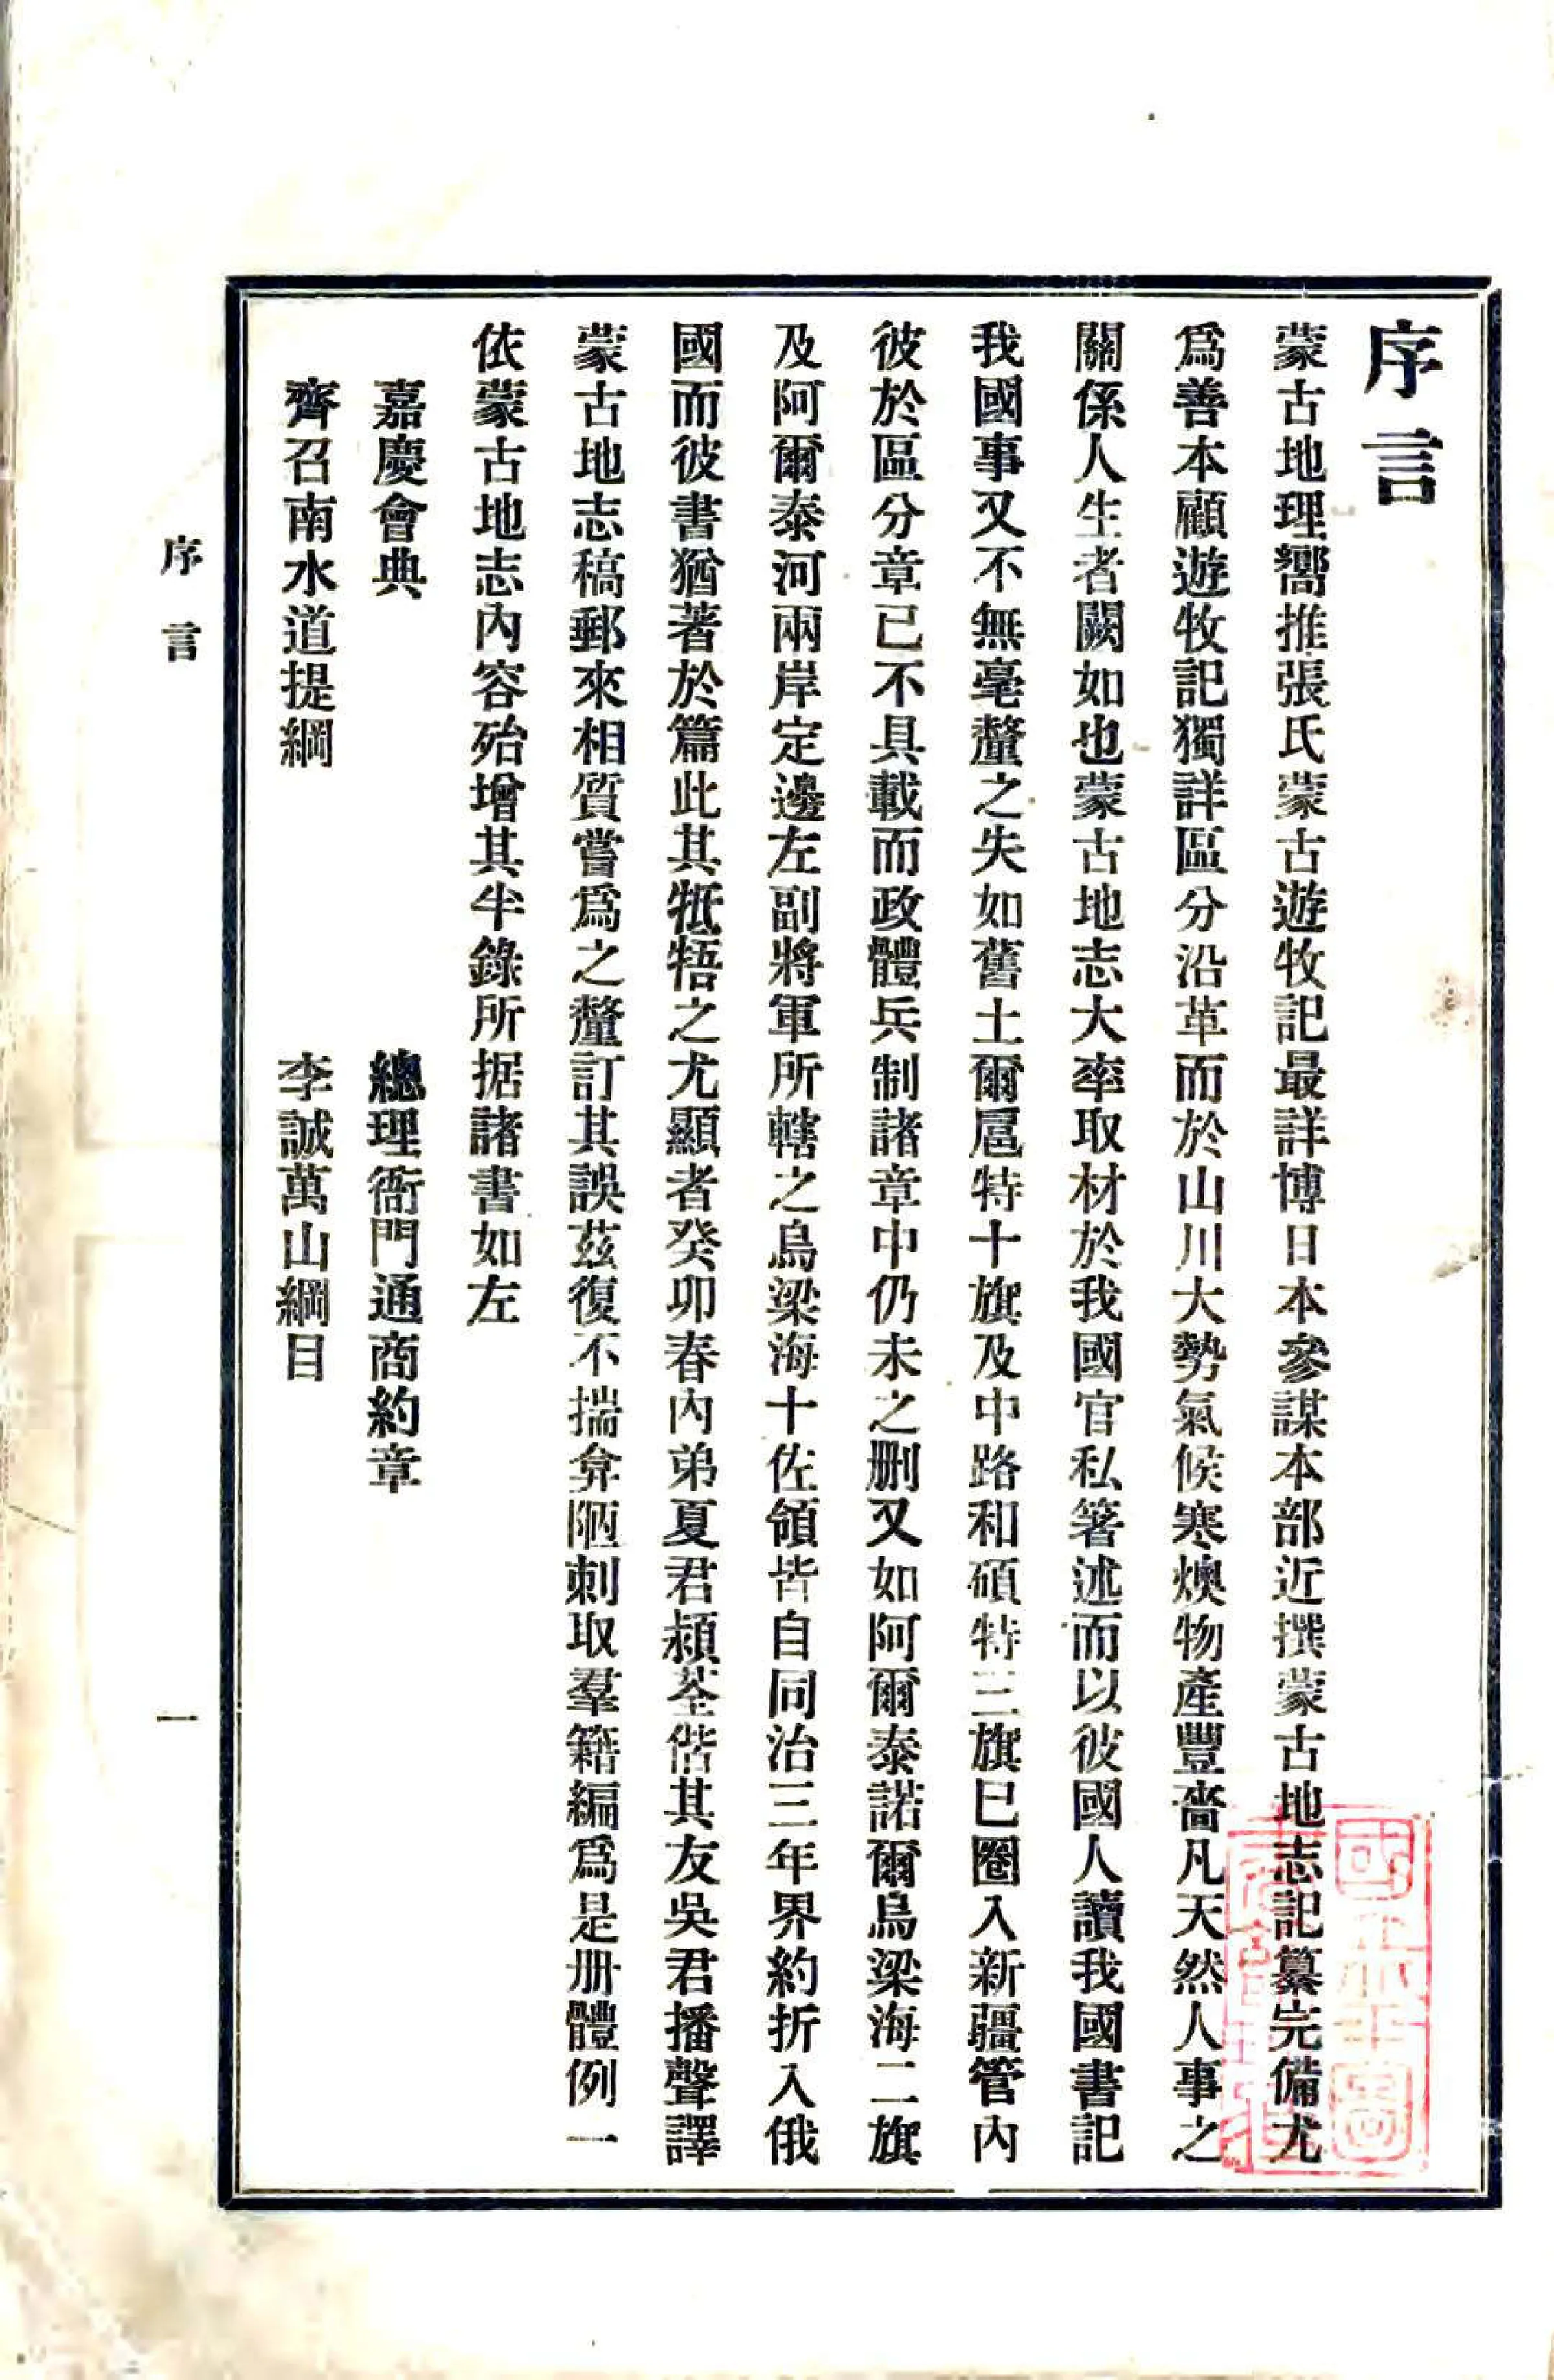 序言
蒙古地理嚮推張氏蒙古遊牧記最詳博日本參謀本部近撰蒙古地志記纂完備尤
爲善本顧遊牧記獨詳區分沿革而於山川大勢氣候寒燠物產豐嗇凡天然人事之
關係人生者闕如也蒙古地志大率取材於我國官私箸述而以彼國人讀我國書記
我國事又不無毫釐之失如舊土爾扈特十旗及中路和碩特三旗巳圈入新疆管內
彼於區分章已不具載而政體兵制諸章中仍未之删又如阿爾泰諾爾烏梁海二旗
及阿爾泰河兩岸定邊左副將軍所轄之烏梁海十佐領皆自同治三年界約折入俄
國而彼書猶著於篇此其牴牾之尤顯者癸卯春內弟夏君頴荃偕其友吳君播聲譯
蒙古地志稿郵來相質嘗爲之釐訂其誤茲復不揣弇陋刺取羣籍編爲是册體例一
依蒙古地志內容殆增其半錄所据諸書如左
嘉慶會典　總理衙門通商約章
齊召南水道提綱　李誠萬山綱目
序言
一